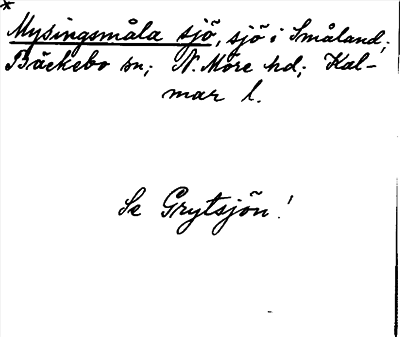 *
Mysingsmåla sjö, sjö i Småland;
Bäckebo sn; N. Möre hd; Kal-
mar l.
Se Grytsjön!